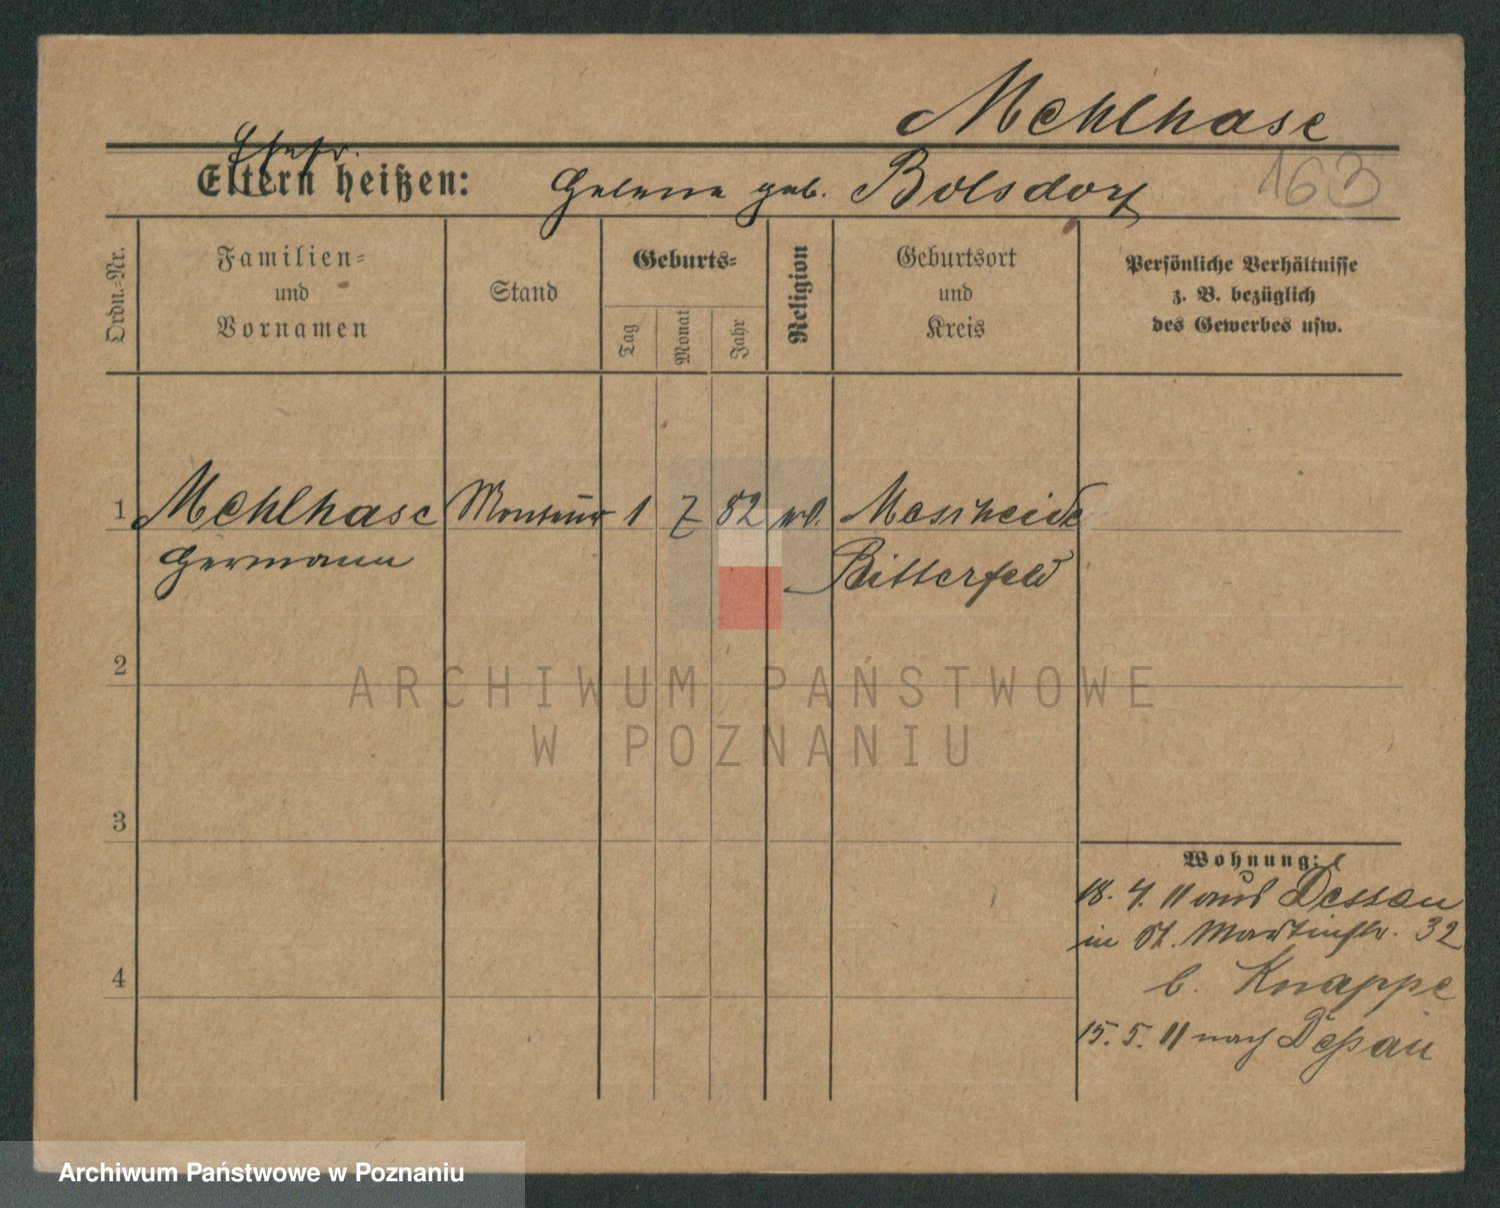 Mehlhase
163
Ehefr.
Eltern heißen: Helene geb. Bolsdorf
Ordn.-Nr.
Familien-
und
Vornamen
Stand
Geburts-
Tag
Monat
Jahr
Religion
Geburtsort
und
Kreis
Persönliche Verhältnisse
z. B. bezüglich
des Gewerbes usw.
1 Mehlhase Monteur 1 7 82 ev. Mosiheide
Hermann Bitterfeld
2
3
4
Wohnung:
18. 4. 11 aus Dessau
in St. Martinstr. 32
b. Knappe
15. 5. 11 nach Deßau
ARCHIWUM PAŃSTWOWE
W POZNANIU
Archiwum Państwowe w Poznaniu